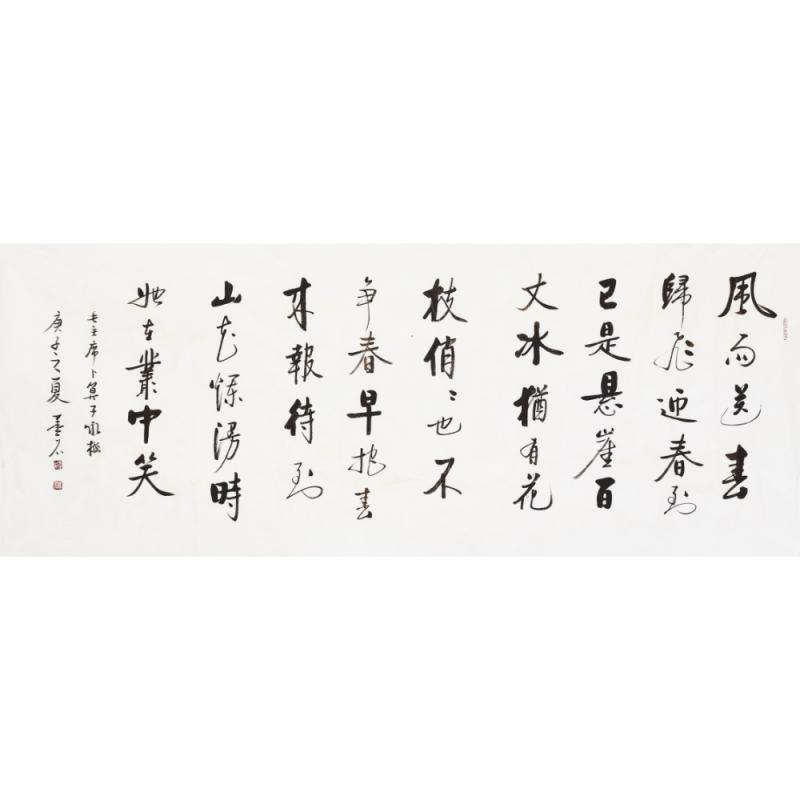 風雨送春
歸飛迎春到
已是悬崖百
丈冰猶有花
枝俏〻也不
争春早把春
来報待到
山花爛漫時
她在叢中笑
毛主席卜算子詠梅
庚子之夏